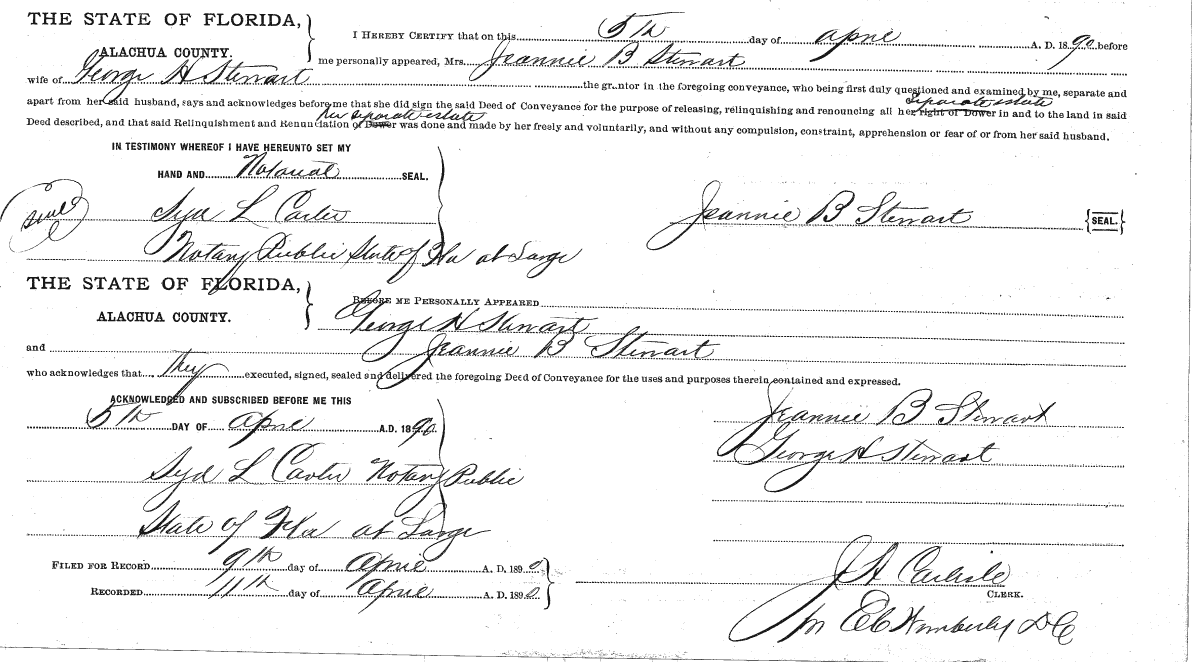 THE STATE OF FLORIDA,
ALACHUA COUNTY.
I HEREBY CERTIFY that on this 5th day of April A. D. 1890 before
me personally appeared, Mrs. Jeannie B Stewart
wife of George H Stewart the grantor in the foregoing conveyance, who being first duly questioned and examined by me, separate and
Separate estate
apart from her said husband, says and acknowledges before me that she did sign the said Deed of Conveyance for the purpose of releasing, relinquishing and renouncing all her right of Dower in and to the land in said
her separate estate
Deed described, and that said Relinquishment and Renunciation of Dower was done and made by her freely and voluntarily, and without any compulsion, constraint, apprehension or fear of or from her said husband.
IN TESTIMONY WHEREOF I HAVE HEREUNTO SET MY
HAND AND Notarial SEAL.
seal Syd L Carter Jeannie B Stewart {SEAL.}
Notary Public State of Fla at Large
THE STATE OF FLORIDA,
ALACHUA COUNTY.
BEFORE ME PERSONALLY APPEARED
George H Stewart
and Jeannie B Stewart
who acknowledges that they executed, signed, sealed and delivered the foregoing Deed of Conveyance for the uses and purposes therein contained and expressed.
ACKNOWLEDGED AND SUBSCRIBED BEFORE ME THIS
5th DAY OF April A.D. 1890.
Jeannie B Stewart
George H Stewart
Syd L Carter Notary Public
State of Fla at Large
FILED FOR RECORD 9th day of April A. D. 1890
RECORDED 11th day of April A. D. 1890.
J A Carlisle
CLERK.
pr E C Wimberly D C